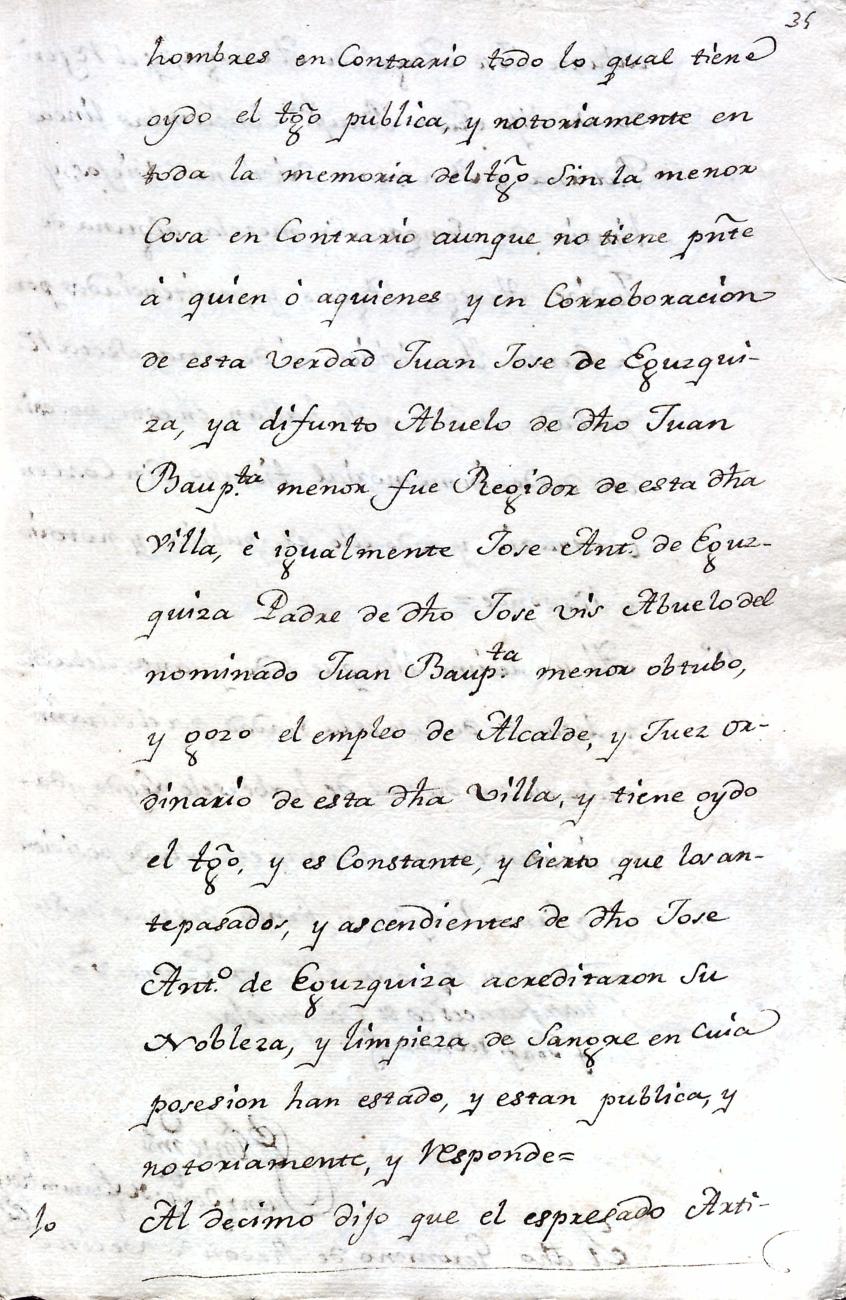 35
hombres en Contrario todo lo qual tiene
oydo el tgõ publica, y notoriamente en
toda la memoria del tgõ Sin la menor
Cosa en Contrario aunque no tiene pñte
á quien ó aquienes y en Corroboracion
de esta verdad Juan Jose de Eguzqui-
za, ya difunto Abuelo de dho Juan
Baup.ta menor fue Regidor de esta dha
Villa, é igualmente Jose Ant.o de Eguz-
quiza Padre de dho José vis Abuelo del
nominado Juan Baup.ta menor obtubo,
y gozo el empleo de Alcalde, y Juez or-
dinario de esta dha Villa, y tiene oydo
el tgõ, y es Constante, y Cierto que los an-
tepasados, y ascendientes de dho Jose
Ant.o de Eguzquiza acreditaron Su
Nobleza, y limpieza de Sangre en Cuia
posesion han estado, y estan publica, y
notoriamente, y Responde=
10 Al decimo dijo que el espresado Arti-